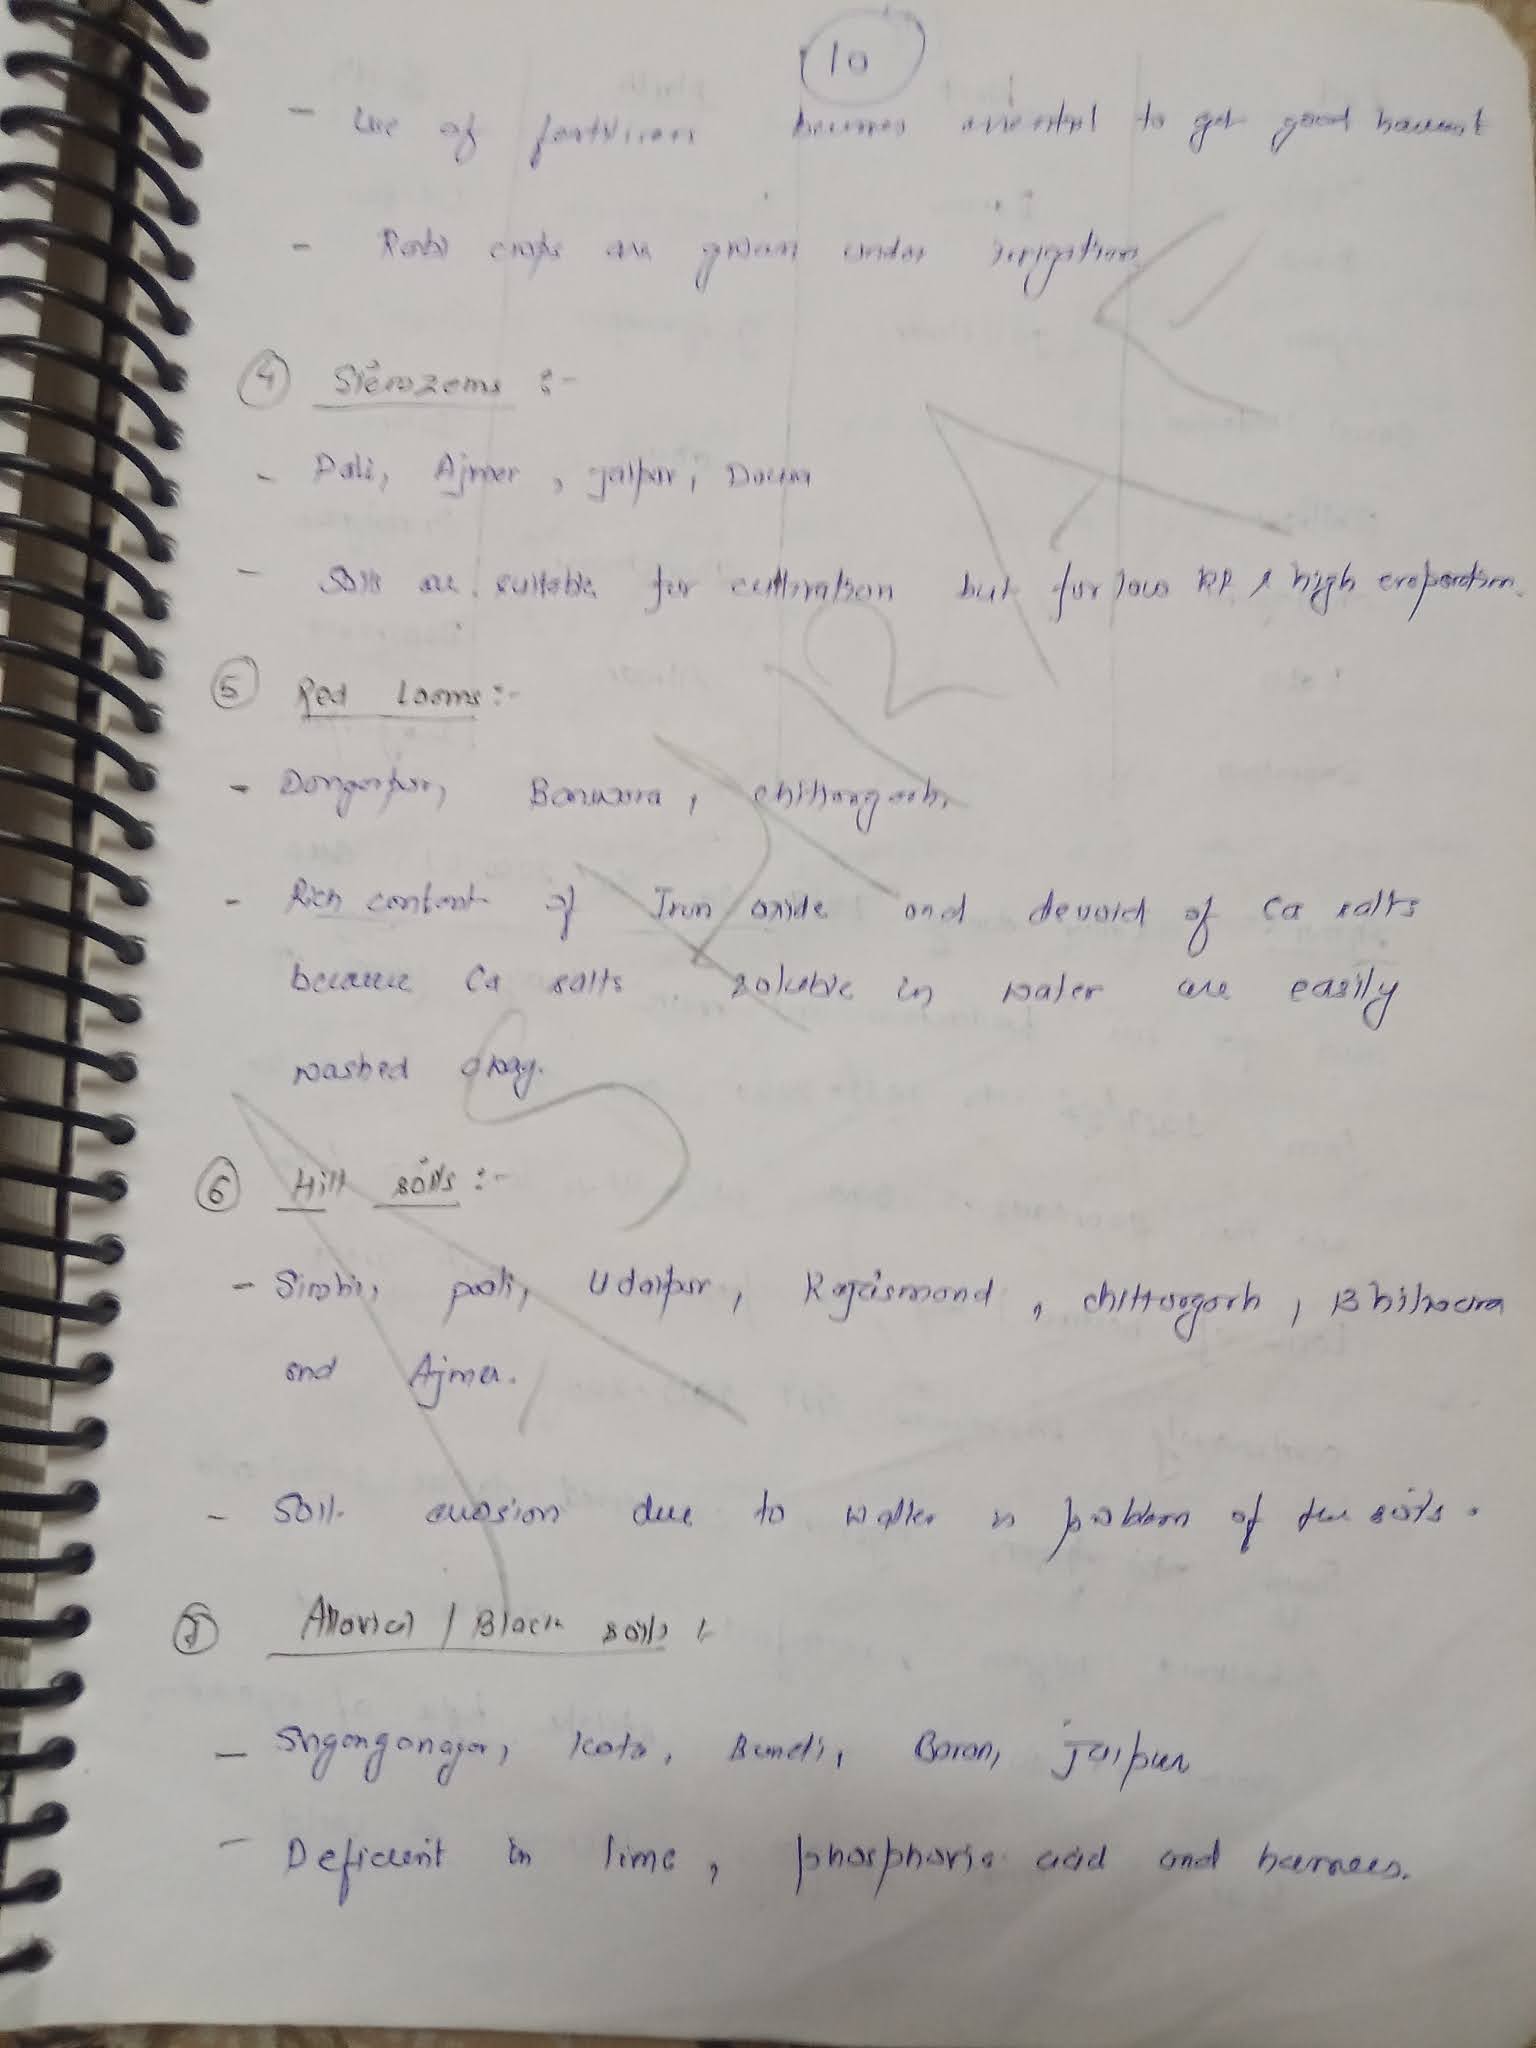 10
- Use of fertilizers becomes essential to get good harvest
- Rabi crops are grown under irrigation
4 Sierozems :-
- Pali, Ajmer, Jaipur, Dausa
- Soils are suitable for cultivation but for low RF & high evaporation.
5 Red Looms :-
- Dongarpur, Banswara, chittorgarh,
- Rich content of Iron oxide and devoid of Ca salts
because Ca salts soluble in water are easily
washed away.
6 Hill soils :-
- Sirohi, pali, Udaipur, Rajasmand, chittorgarh, Bhilwara
and Ajmer.
- Soil erosion due to water is problem of the soils.
7 Alluvial / Black soils :-
- Sriganganagar, Kota, Bundi, Baran, Jaipur
- Deficient in lime, phosphoric acid and